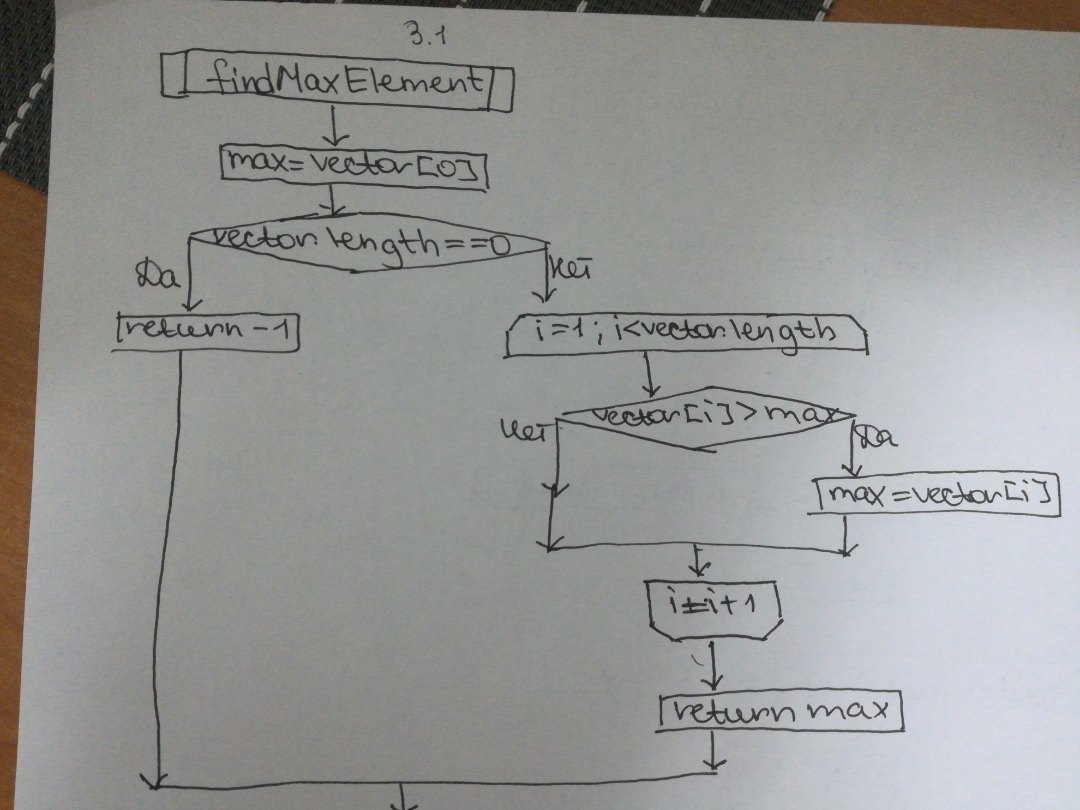 3.1
findMaxElement
max=vector[0]
vector.length==0
Да
Нет
return -1
i=1; i<vector.length
vector[i]>max
Нет
Да
max=vector[i]
i=i+1
return max